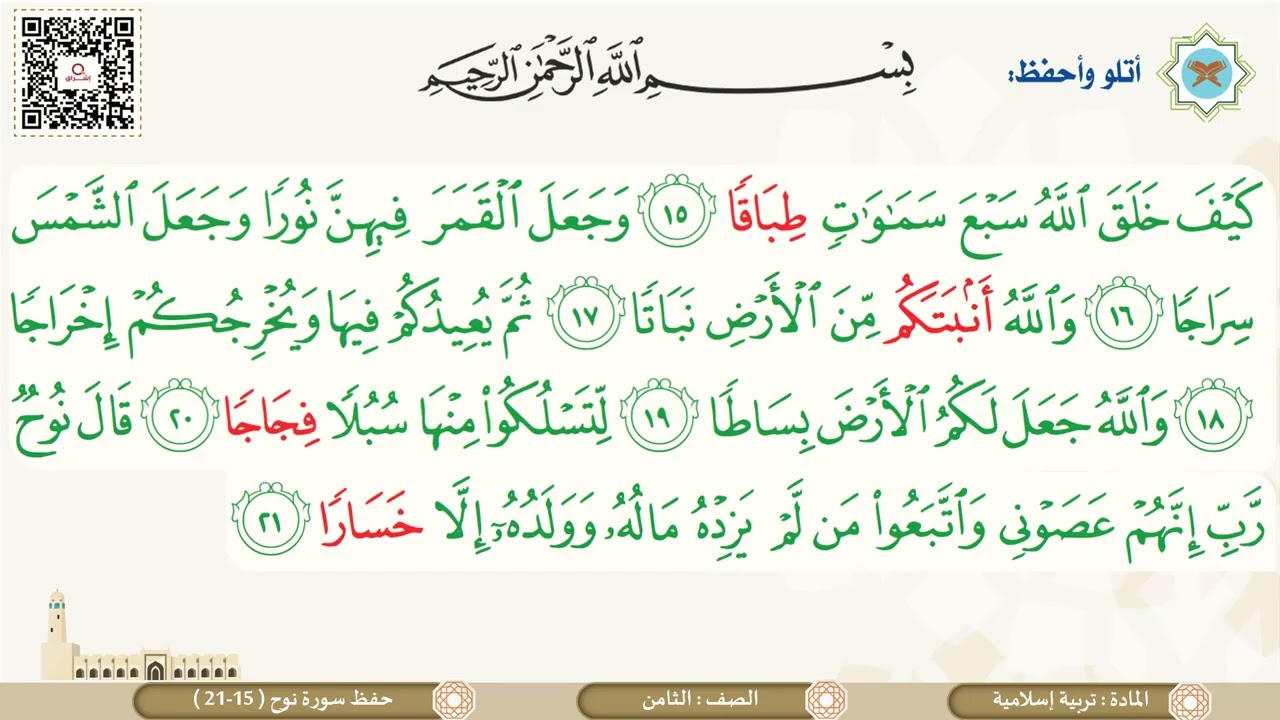 أتلو وأحفظ:
بِسْمِ ٱللَّهِ ٱلرَّحْمَٰنِ ٱلرَّحِيمِ
إشراق
كَيْفَ خَلَقَ ٱللَّهُ سَبْعَ سَمَٰوَٰتٍ طِبَاقًا ١٥ وَجَعَلَ ٱلْقَمَرَ فِيهِنَّ نُورًا وَجَعَلَ ٱلشَّمْسَ
سِرَاجًا ١٦ وَٱللَّهُ أَنۢبَتَكُم مِّنَ ٱلْأَرْضِ نَبَاتًا ١٧ ثُمَّ يُعِيدُكُمْ فِيهَا وَيُخْرِجُكُمْ إِخْرَاجًا
١٨ وَٱللَّهُ جَعَلَ لَكُمُ ٱلْأَرْضَ بِسَاطًا ١٩ لِّتَسْلُكُوا۟ مِنْهَا سُبُلًا فِجَاجًا ٢٠ قَالَ نُوحٌ
رَّبِّ إِنَّهُمْ عَصَوْنِى وَٱتَّبَعُوا۟ مَن لَّمْ يَزِدْهُ مَالُهُۥ وَوَلَدُهُۥٓ إِلَّا خَسَارًا ٢١
المادة : تربية إسلامية
الصف : الثامن
حفظ سورة نوح ( 15-21 )